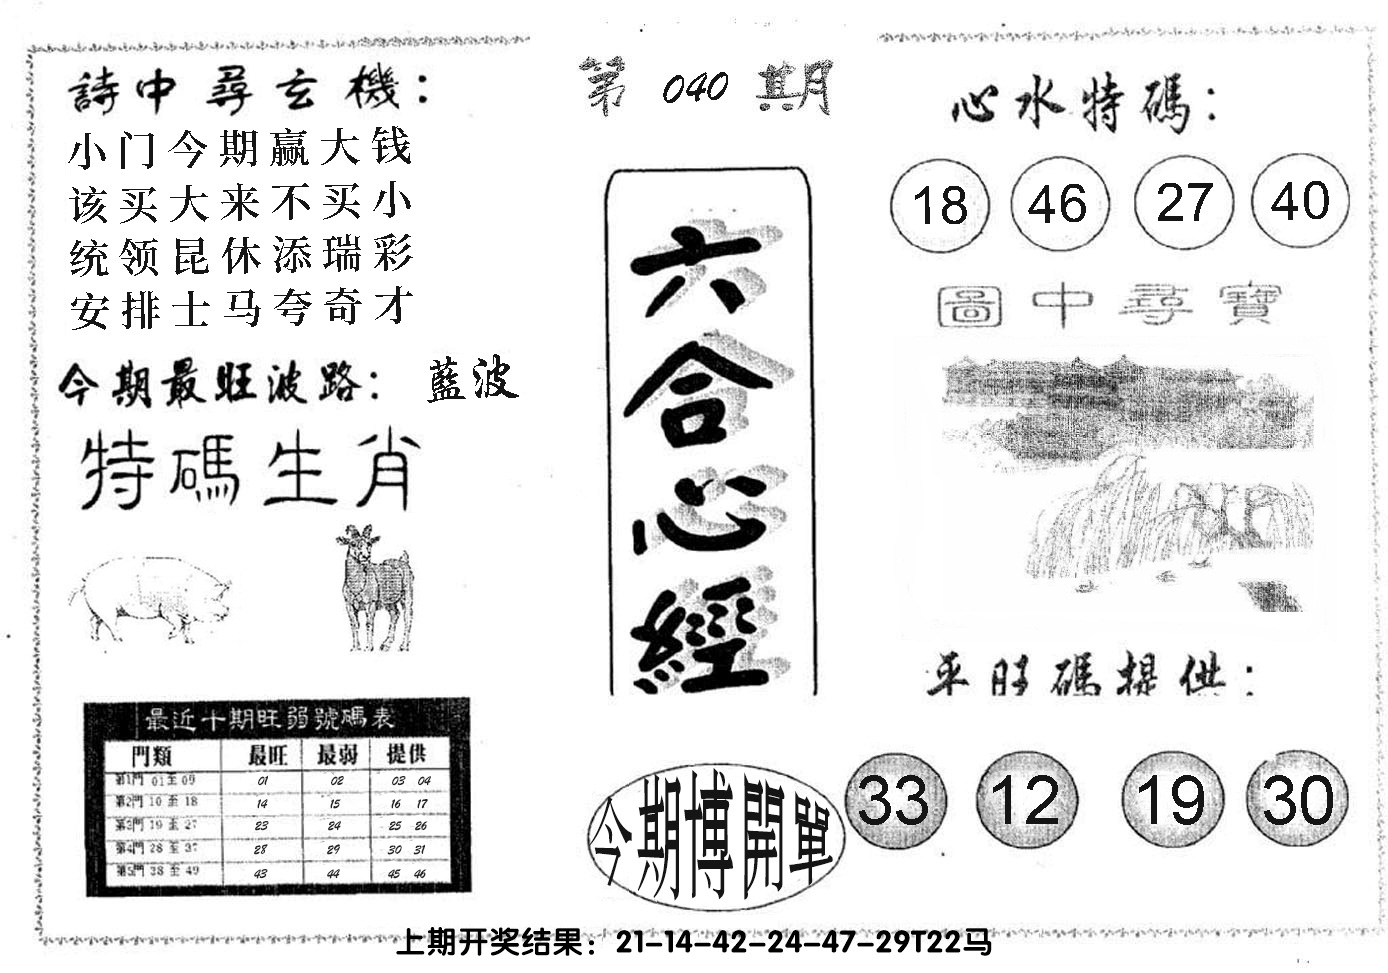 第 040 期
詩中尋玄機：
小门今期赢大钱
该买大来不买小
统领昆休添瑞彩
安排士马夸奇才
今期最旺波路： 藍波
特碼生肖
最近十期旺弱號碼表
門類 最旺 最弱 提供
第1門 01至09 01 02 03 04
第2門 10至18 14 15 16 17
第3門 19至27 23 24 25 26
第4門 28至37 28 29 30 31
第5門 38至49 43 44 45 46
六合心經
今期博開單
心水特碼：
18 46 27 40
圖中尋寶
平旺碼提供：
33 12 19 30
上期开奖结果：21-14-42-24-47-29T22马